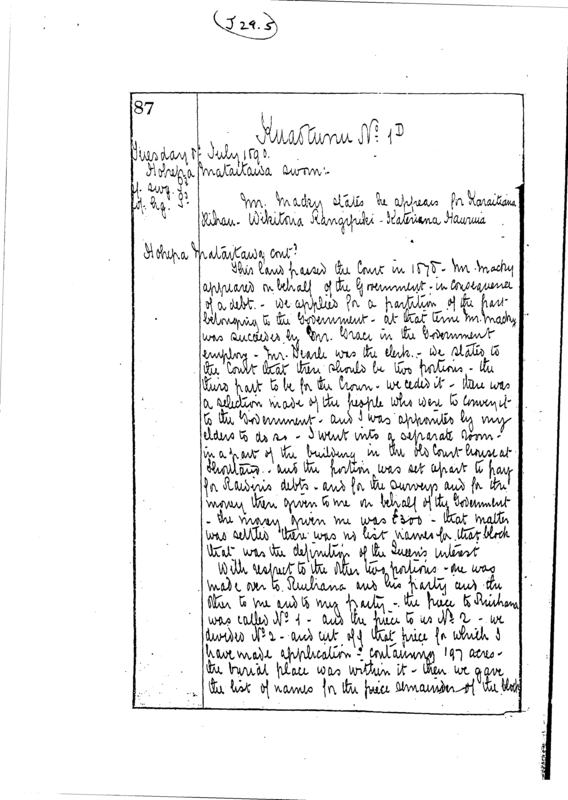 J 29.5
87
Kuaotunu No 1D
Tuesday 8th July 1890.
Hohepa Mataitawa sworn:-
Mr. Macky states he appears for Karaitiana
Kihau - Wikitoria Rangipiki - Kateriana Hauruia
Hohepa Mataitawa contd
This land passed the Court in 1878 - Mr. Macky
appeared on behalf of the Government - in consequence
of a debt. - we applied for a partition of the part
belonging to the Government - at that time Mr. Macky
was succeeded by Mr. Grace in the Government
employ - Mr. Searle was the clerk. - we stated to
the Court that there should be two portions - the
third part to be for the Crown - we ceded it - there was
a selection made of the people who were to convey it
to the Government - and I was appointed by my
elders to do so - I went into a separate room -
in a part of the building in the old Court house at
Shortland - and the portion was set apart to pay
for Rawiri's debts - and for the surveys and for the
money then given to me on behalf of the Government
- the money given me was £300 - that matter
was settled there was no list names for that block
that was the definition of the Queen's interest
With respect to the other two portions - one was
made over to Ruihana and his party and the
other to me and to my party - the piece to Ruihana
was called No 1 - and the piece to us No 2 - we
divided No 2 - and cut off that piece for which I
have made application - containing 197 acres -
the burial place was within it - then we gave
the list of names for the piece remainder of the block